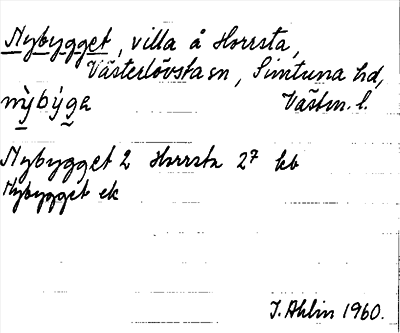 Nybygget, villa å Horrsta,
Västerlövsta sn, Simtuna hd,
Västm. l.
nỳbýga
Nybygget 2 Horrsta 2⁷ kb
Nybygget ek
I. Ahlin 1960.